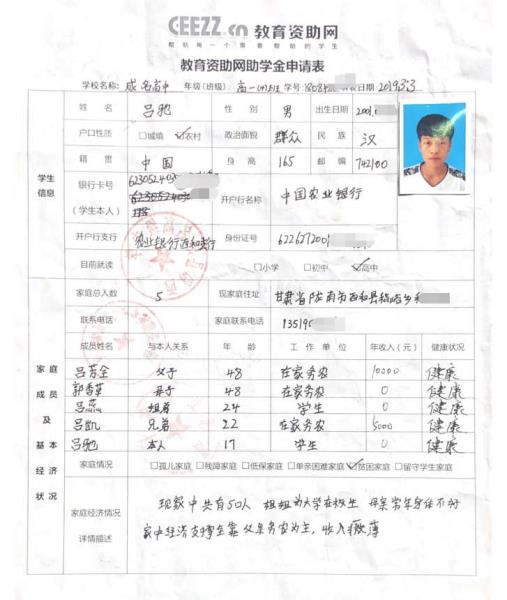 CEEZZ.cn 教育资助网
帮助每一个需要帮助的学生
教育资助网助学金申请表
学校名称: 成名高中 年级(班级): 高一 学号: 日期 2019.3.3
学生信息
姓名 吕驰 性别 男 出生日期 2001.
户口性质 □城镇 ☑农村 政治面貌 群众 民族 汉
籍贯 中国 身高 165 邮编 742100
银行卡号 (学生本人) 623052403 开户行名称 中国农业银行
开户行支行 农业银行西和支行 身份证号 622627200
目前就读 □小学 □初中 ☑高中
家庭成员及基本经济状况
家庭总人数 5 现家庭住址 甘肃省陇南市西和县 乡
联系电话 家庭联系电话 13519
成员姓名 与本人关系 年龄 工作单位 年收入(元) 健康状况
吕芳全 父子 48 在家务农 10000 健康
郭香草 母子 48 在家务农 0 健康
吕蕊 姐弟 24 学生 0 健康
吕凯 兄弟 22 在家务农 5000 健康
吕驰 本人 17 学生 0 健康
家庭情况 □孤儿家庭 □残障家庭 □低保家庭 □单亲困难家庭 ☑贫困家庭 □留守学生家庭
家庭经济情况详情描述
现家中共有5口人 姐姐为大学在校生 母亲常年身体不好
家中经济支撑全靠父亲务农为主,收入微薄